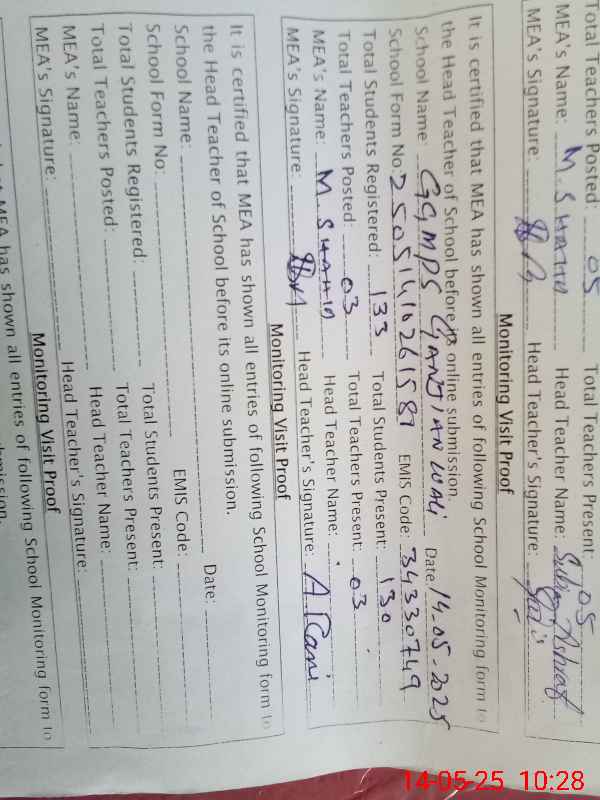 Total Teachers Posted: 05 Total Teachers Present: 05
MEA's Name: M. SHAHID Head Teacher Name: Ashraf
MEA's Signature: Head Teacher's Signature:
Monitoring Visit Proof
It is certified that MEA has shown all entries of following School Monitoring form to
the Head Teacher of School before its online submission.
School Name: GGMPS WALI Date 14.05.2025
School Form No: 25051410261581 EMIS Code: 34330749
Total Students Registered: 133 Total Students Present: 130
Total Teachers Posted: 03 Total Teachers Present: 03
MEA's Name: M. SHAHID Head Teacher Name:
MEA's Signature: Head Teacher's Signature: A Rani
Monitoring Visit Proof
It is certified that MEA has shown all entries of following School Monitoring form to
the Head Teacher of School before its online submission.
School Name: Date:
School Form No: EMIS Code:
Total Students Registered: Total Students Present:
Total Teachers Posted: Total Teachers Present:
MEA's Name: Head Teacher Name:
MEA's Signature: Head Teacher's Signature:
Monitoring Visit Proof
MEA has shown all entries of following School Monitoring form to
14-05-25 10:28